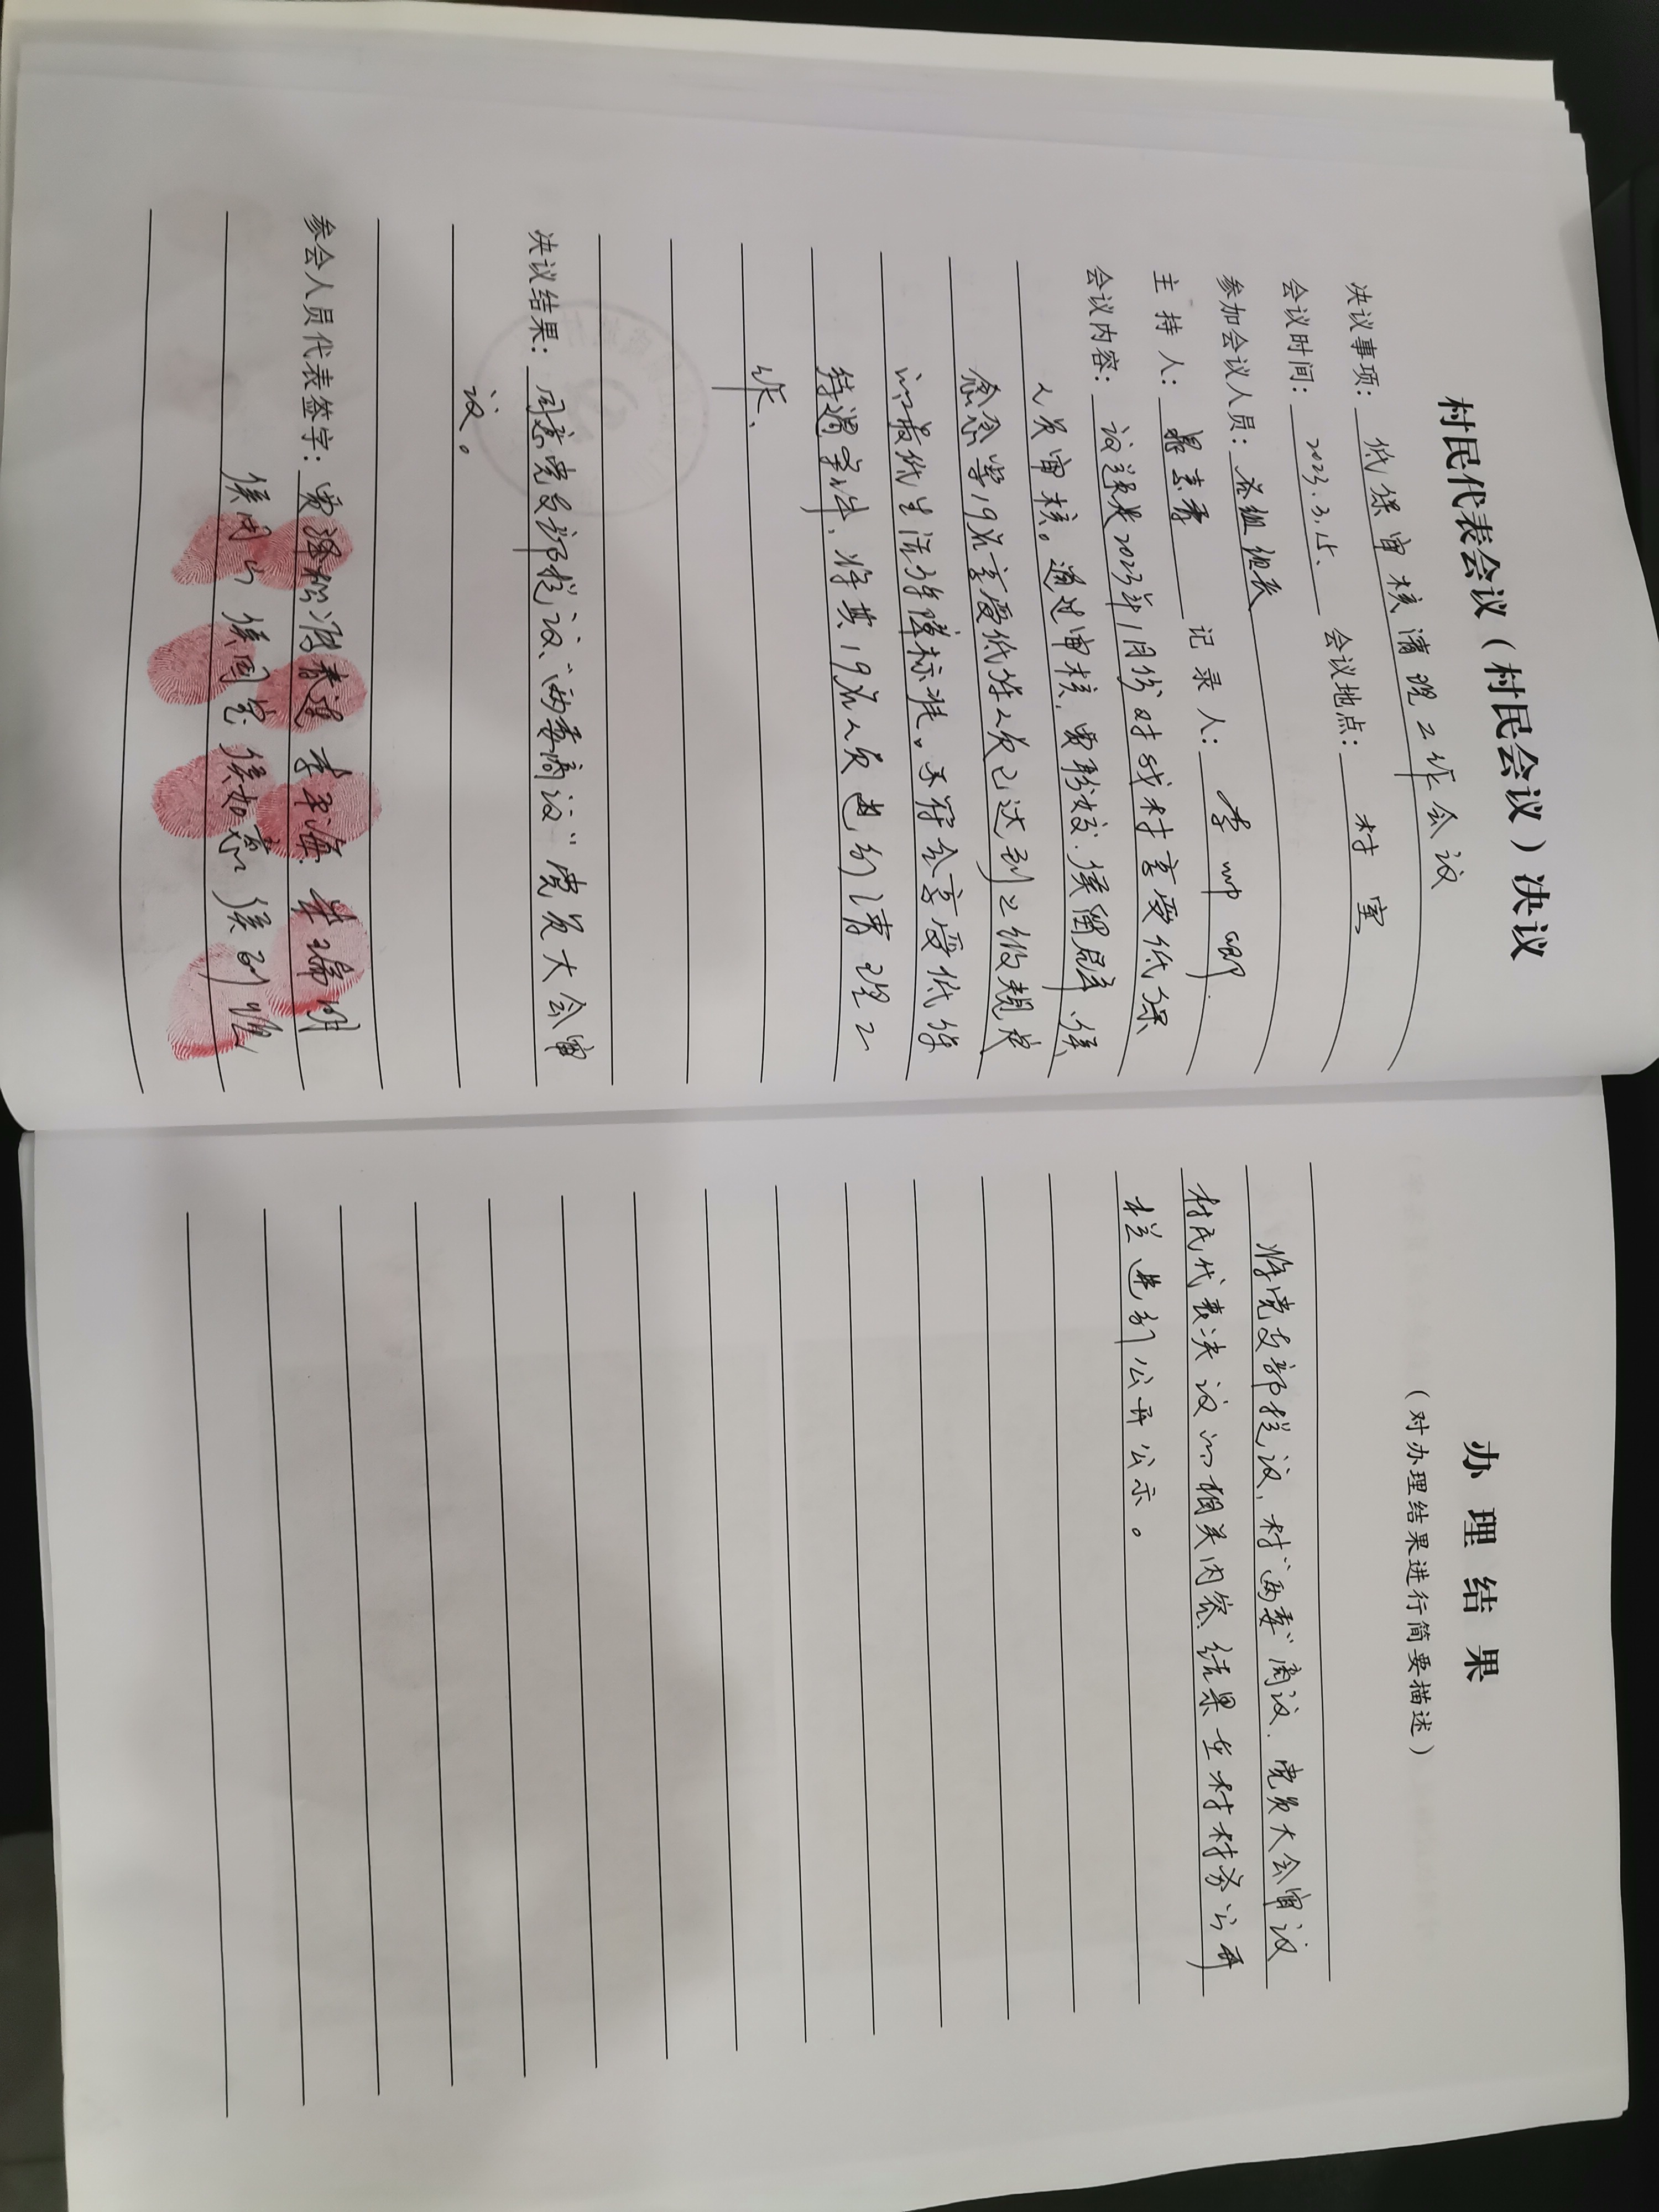 村民代表会议（村民会议）决议
决议事项：低保审核清理工作会议
会议时间：2023.3.15. 会议地点：村室
参加会议人员：各组组长
主持人：晁素香 记录人：李
会议内容：议题是2023年1月份对我村享受低保
人员审核。通过审核，贾盼姣、侯留群、侯
念念等19名享受低保人员已达到上级规定
的最低生活保障标准。不符合享受低保
待遇条件，将其19名人员进行清理工
作、
决议结果：同意党支部提议、“两委商议”党员大会审
议。
参会人员代表签字：贾泽松 冯春莲 李平海 朱瑞明
侯同山 侯国宝 侯如意 侯
办理结果
（对办理结果进行简要描述）
将党支部提议，村“两委”商议、党员大会审议
村民代表决议的相关内容、结果在村村务公开
栏进行公开公示。